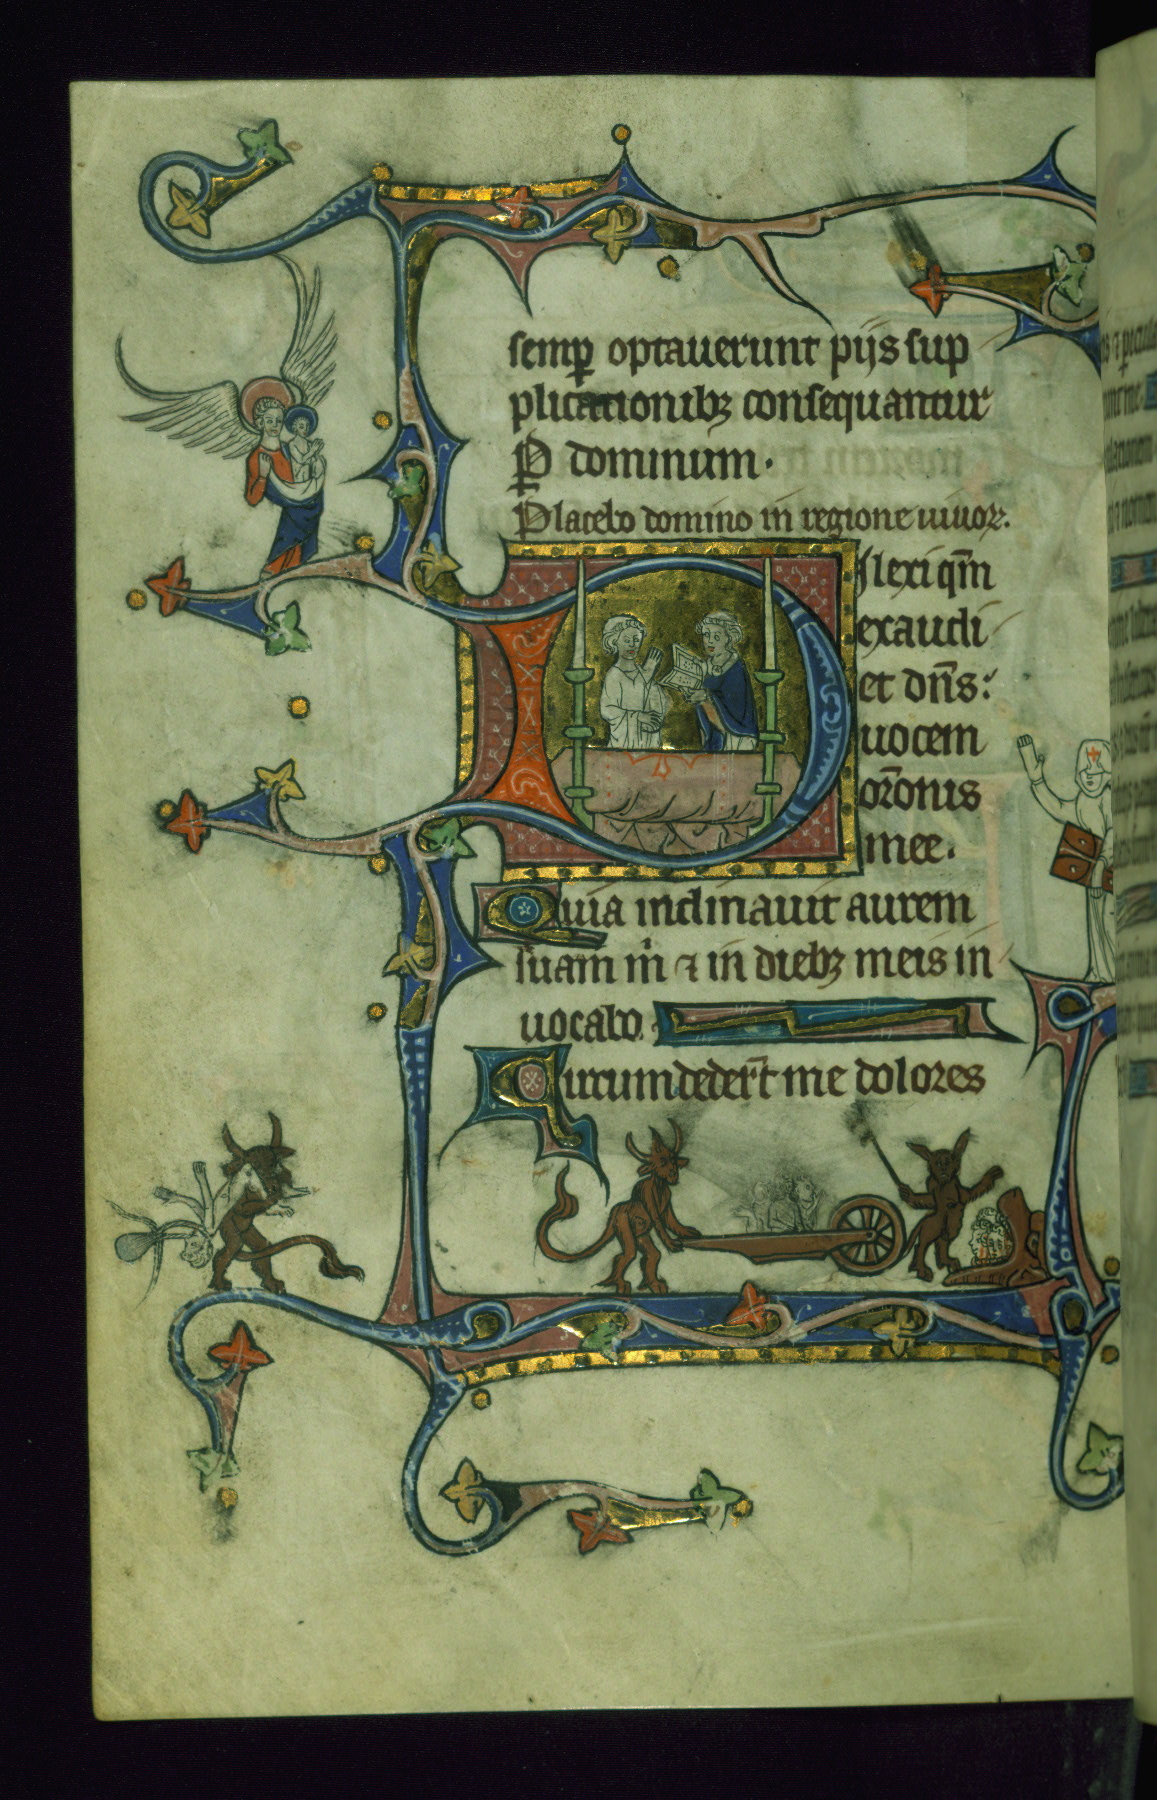 semꝑ optauerunt pijs sup
plicationibꝫ consequantur
Ꝑ dominum.
Placebo domino in regione uiuoꝝ.
Dilexi qm̄
exaudi
et dn̄s:
uocem
or̄onis
mee.
Quia inclinauit aurem
suam m̄ ⁊ in diebꝫ meis in
uocabo.
Circumdeder̄t me dolores